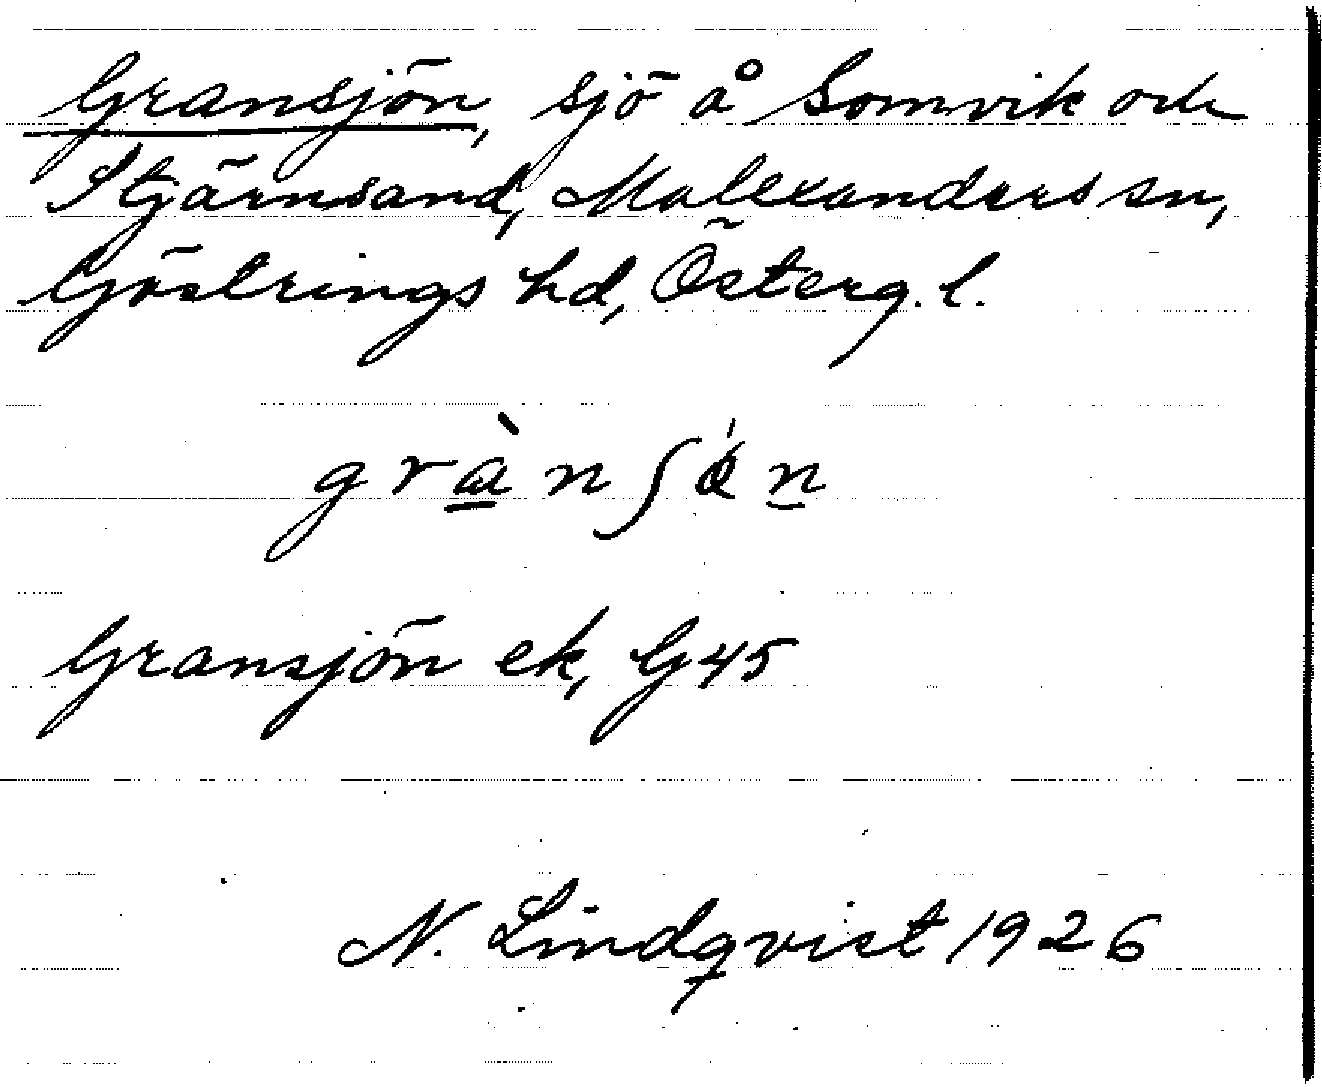 Gransjön, sjö å Somvik och
Stjärnsand, Malexanders sn,
Göstrings hd, Österg. l.
grànʃǿn
Gransjön ek, G45
N. Lindqvist 1926